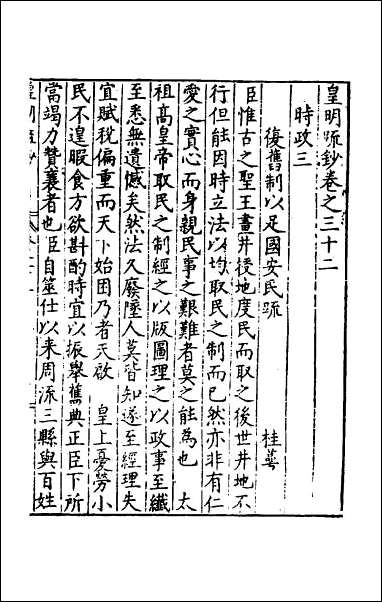 皇明疏鈔卷之三十二
時政三
復舊制以足國安民疏 桂萼
臣惟古之聖王畫井授地度民而取之後世井地不
行但能因時立法以均取民之制而已然亦非有仁
愛之實心而身親民事之艱難者莫之能為也 太
祖高皇帝取民之制經之以版圖理之以政事至纖
至悉無遺憾矣然法久廢墜人莫皆知遂至經理失
宜賦稅偏重而天下始困乃者天啟 皇上憂勞小
民不遑暇食方欲斟酌時宜以振舉舊典正臣下所
當竭力贊襄者也臣自筮仕以来周流三縣與百姓